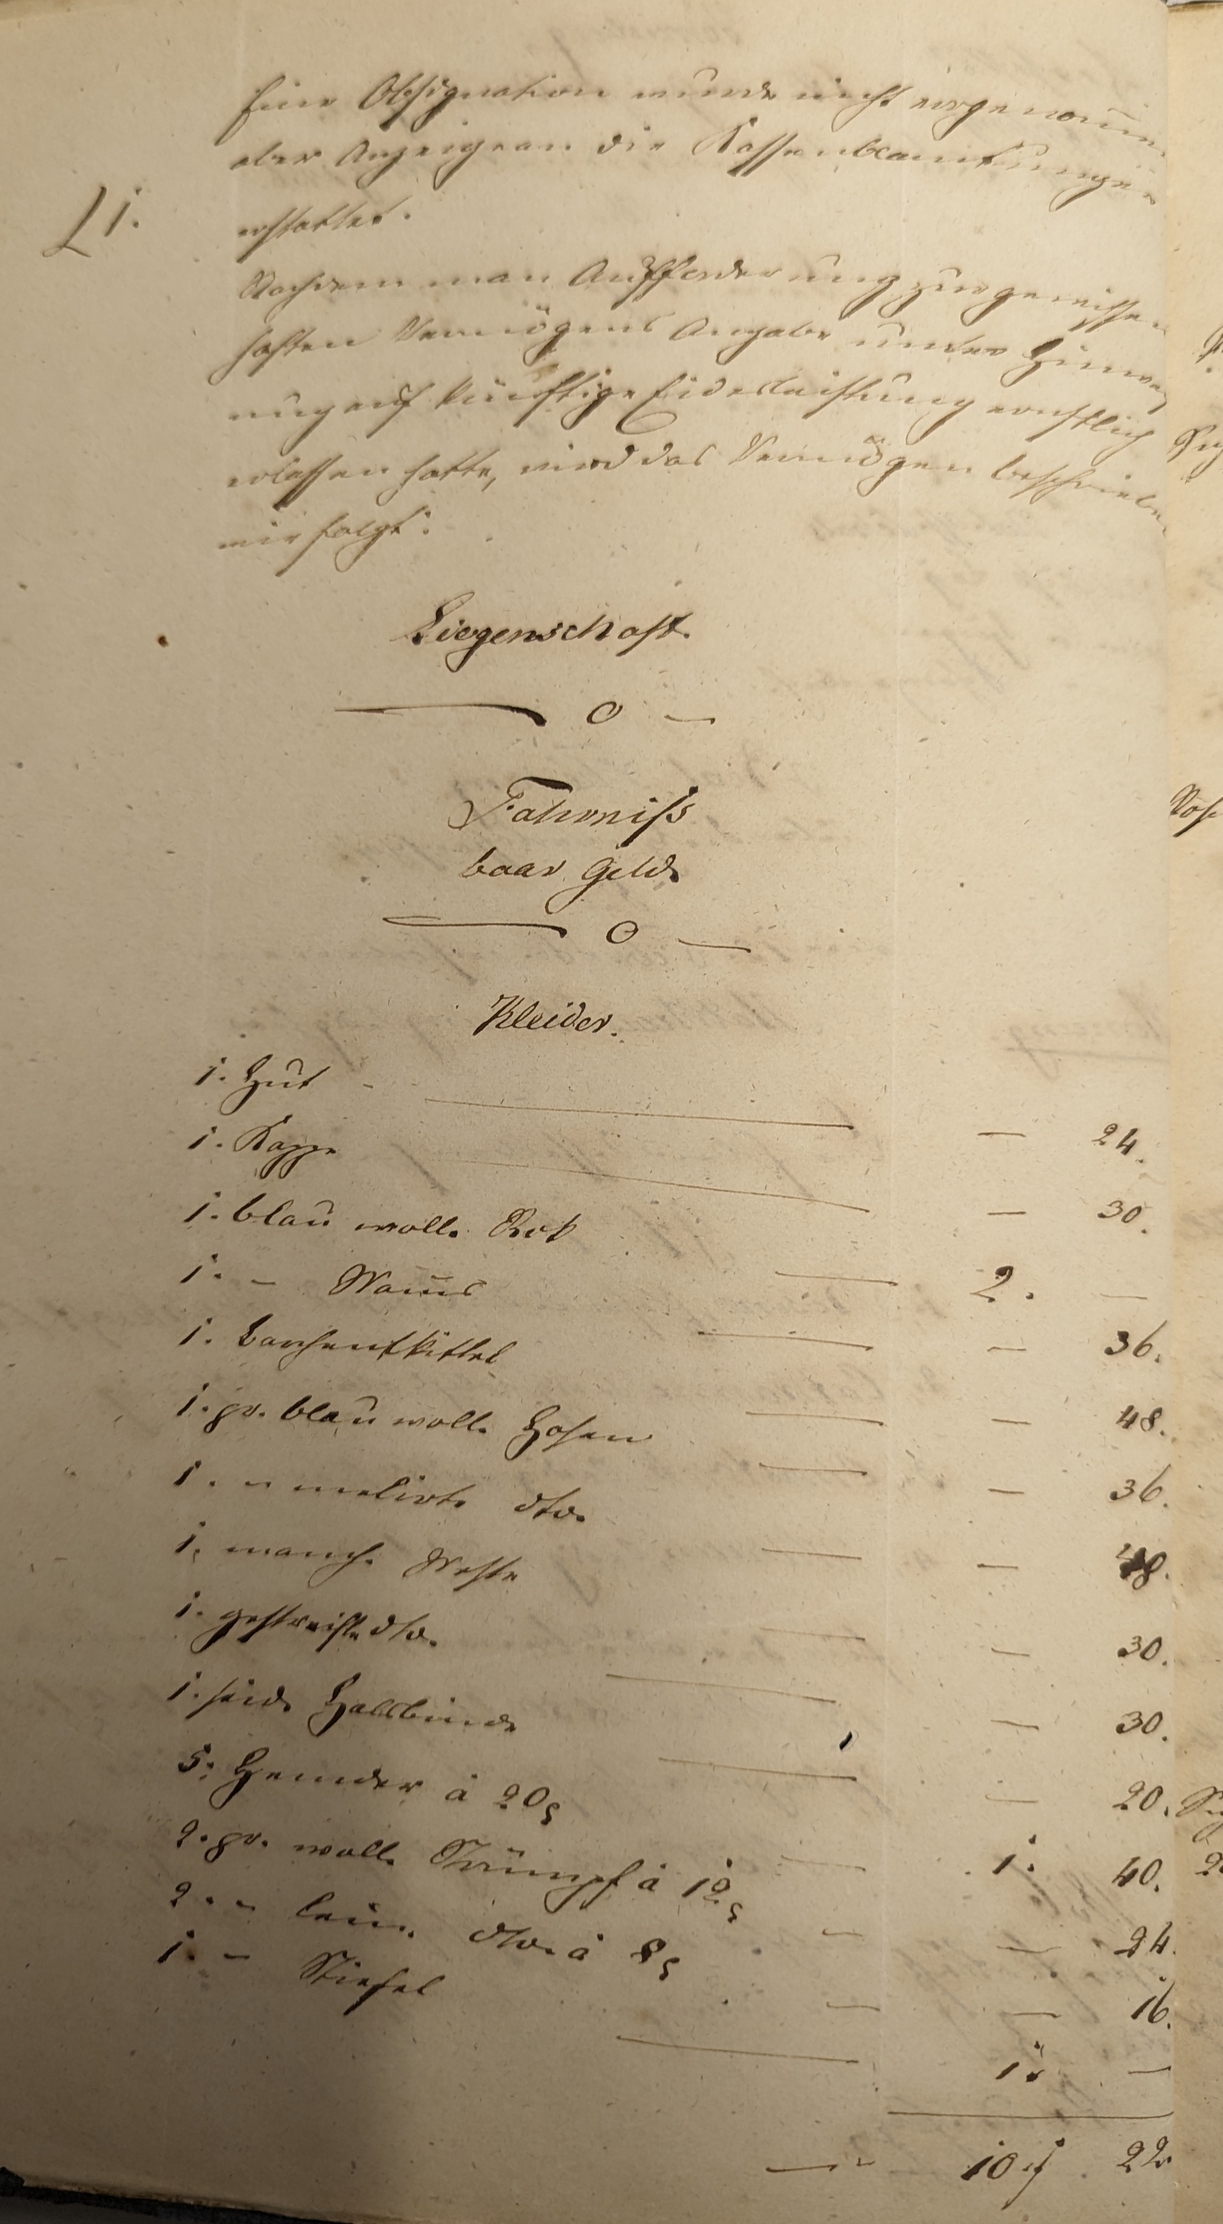 Eine Obsignation wurde nicht vorgenomm
aber Anzeige an die Kassenbeamtungen
erstattet.
L 1.
Nachdem man Aufforderung zur gewissen
haften Vermögens Angabe unter Hinwei
ung auf künftige Eidesleistung ernstlich
erlassen hatte, wird das Vermögen beschrieben
wie folgt:
Liegenschaft.
— 0 —
Fahrniß
baar Geld.
— 0 —
Kleider.
1. Hut — — 24.
1. Kappe — — 30.
1. blau woll. Rok — 2. —
1. – Wams — — 36.
1. Barchentkittel — — 48.
1. pr. blau woll. Hosen — — 36.
1. „ melirte dto. — — 48.
1. manch. Weste — — 30.
1. gestreifte dto. — — 30.
1. seid. Halsbinde — — 20.
5. Hemder à 20 — 1. 40.
2. pr. woll. Strümpf à 12 — — 24.
2. „ lein. dto. à 8 — — 16.
1. – Stiefel — 1. —
— 10 f 22